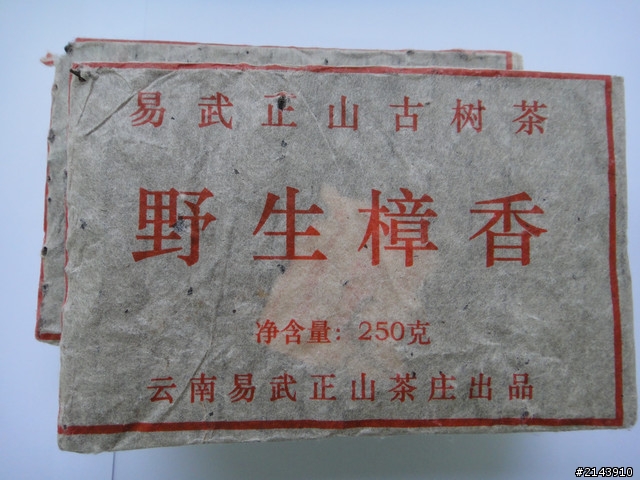 易武正山古树茶
野生樟香
净含量：250克
云南易武正山茶庄出品
#2143910